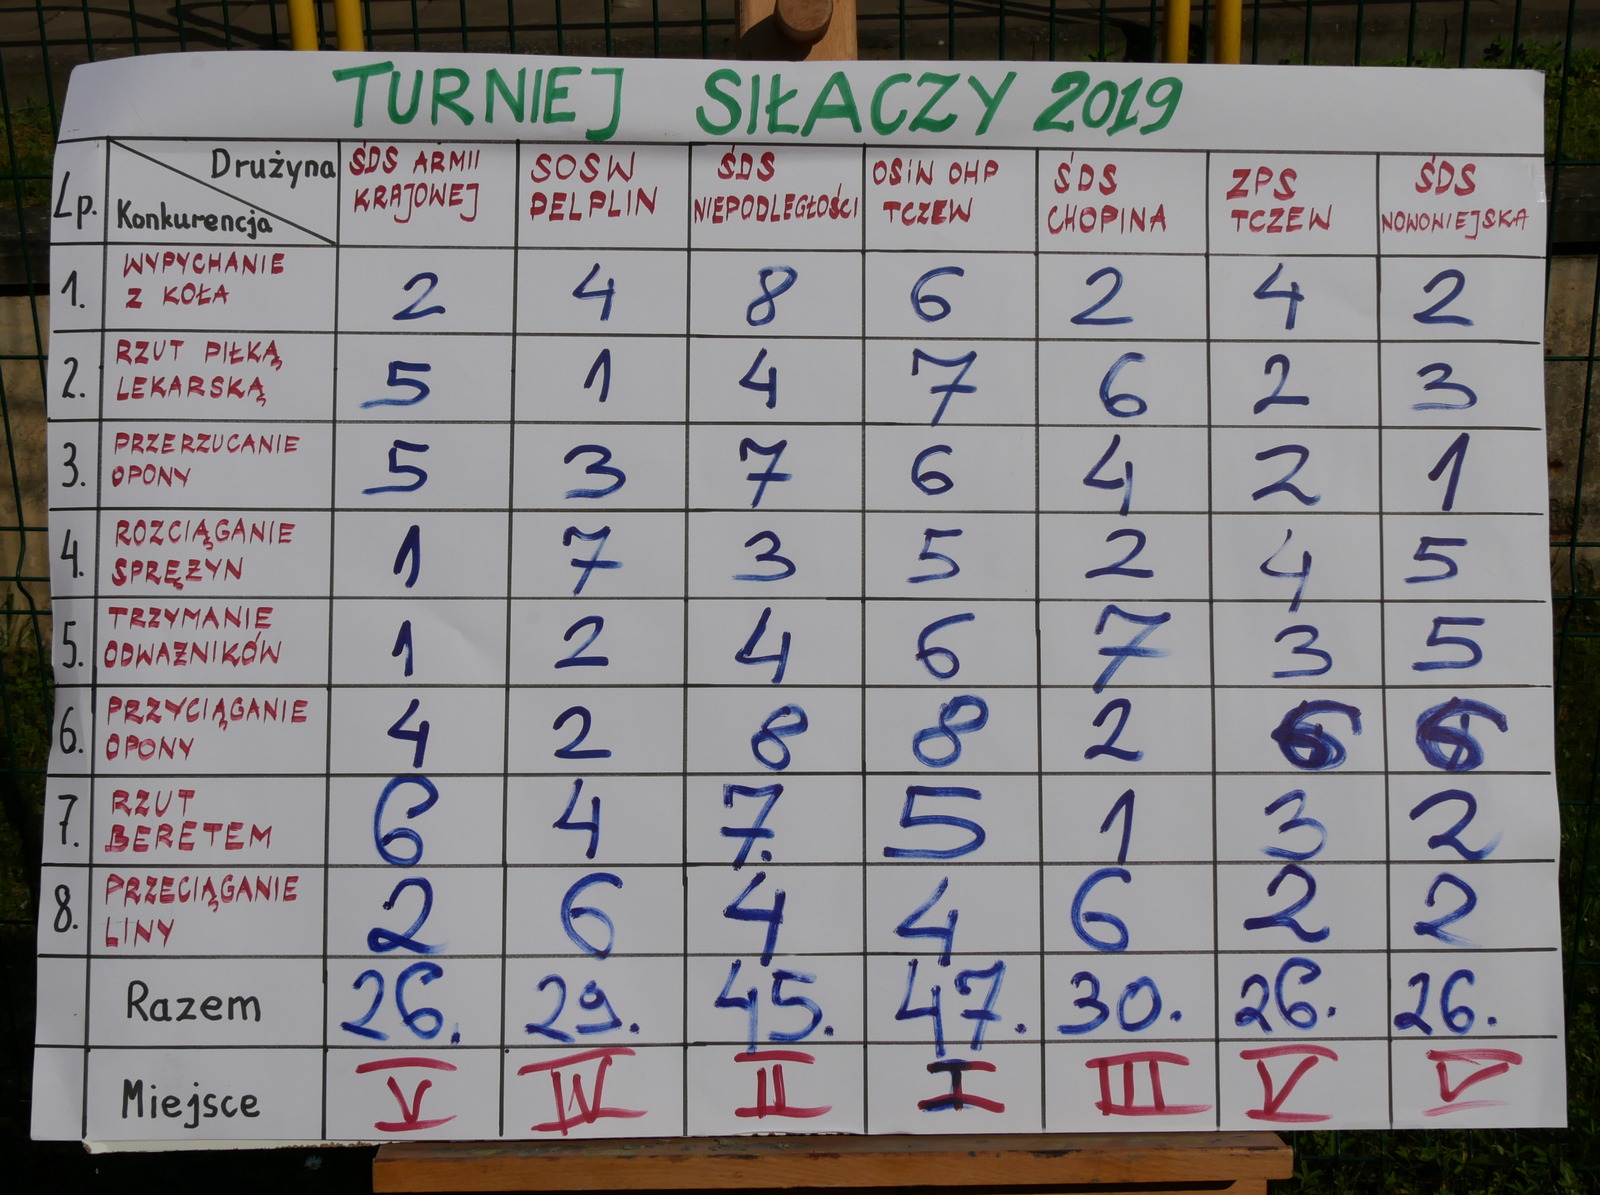 TURNIEJ SIŁACZY 2019
Lp. Drużyna Konkurencja ŚDS ARMII KRAJOWEJ SOSW PELPLIN ŚDS NIEPODLEGŁOŚCI OSiW OHP TCZEW ŚDS CHOPINA ZPS TCZEW ŚDS NOWOWIEJSKA
1. WYPYCHANIE Z KOŁA 2 4 8 6 2 4 2
2. RZUT PIŁKĄ LEKARSKĄ 5 1 4 7 6 2 3
3. PRZERZUCANIE OPONY 5 3 7 6 4 2 1
4. ROZCIĄGANIE SPRĘŻYN 1 7 3 5 2 4 5
5. TRZYMANIE ODWAŻNIKÓW 1 2 4 6 7 3 5
6. PRZYCIĄGANIE OPONY 4 2 8 8 2 6 6
7. RZUT BERETEM 6 4 7. 5 1 3 2
8. PRZECIĄGANIE LINY 2 6 4 4 6 2 2
Razem 26. 29. 45. 47. 30. 26. 26.
Miejsce V IV II I III V V